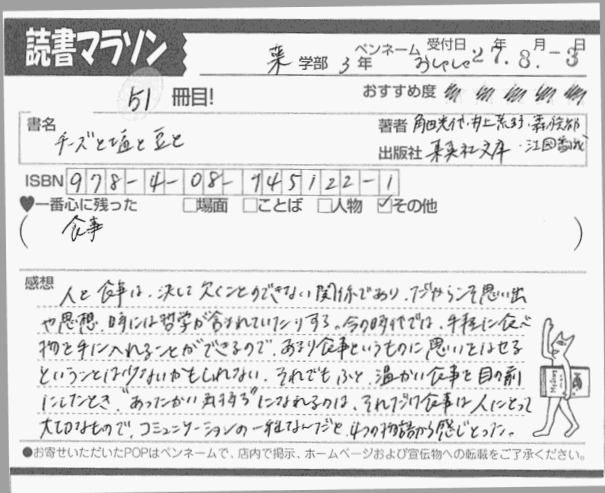 読書マラソン
薬 学部 3年 ペンネーム おしゃしゃ 受付日 27年 8.月 -3日
51 冊目! おすすめ度
書名 チーズと塩と豆と
著者 角田光代・井上荒野・森絵都・江國香織
出版社 集英社文庫
ISBN 978-4-08-745122-1
♥一番心に残った □場面 □ことば □人物 ☑その他
( 食事 )
感想 人と食事は、決して欠くことのできない関係であり、だからこそ思い出
や思想、時には哲学が含まれていたりする。今の時代では、手軽に食べ
物を手に入れることができるので、あまり食事というものに思いをはせる
ということは少ないかもしれない。それでもふと、温かい食事を目の前
にしたとき、"あったかい気持ち"になれるのは、それだけ食事は人にとって
大切なもので、コミュニケーションの一種なんだと、4つの物語から感じとった。
●お寄せいただいたPOPはペンネームで、店内で掲示、ホームページおよび宣伝物への転載をご了承ください。